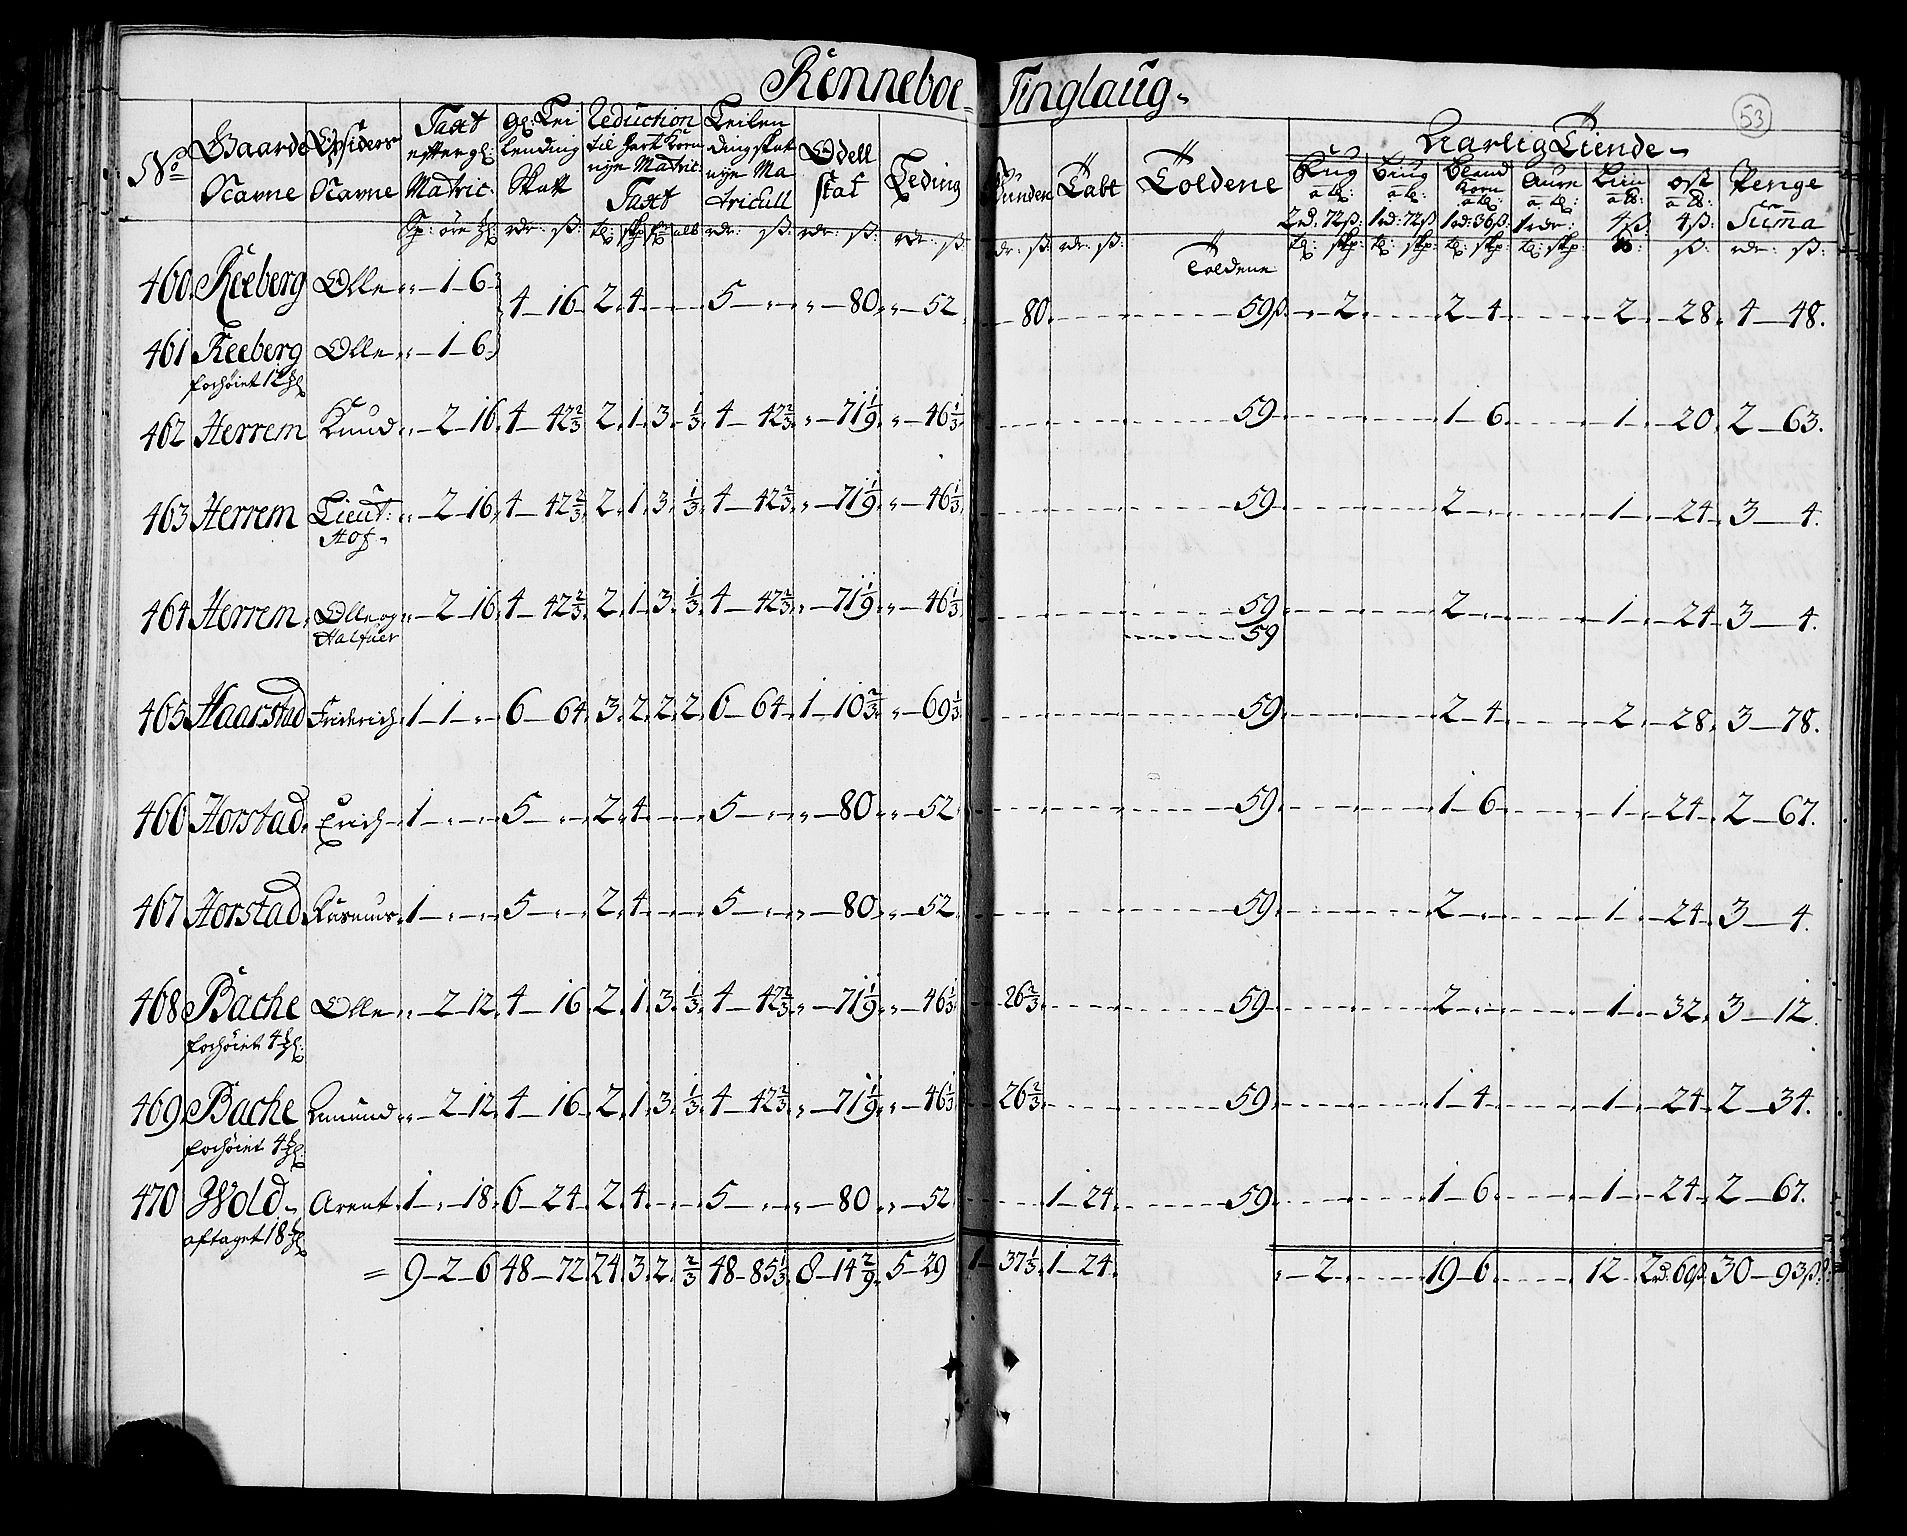 Rönneboe Tinglaug
53
No
Gaarde Navne
Opsiders Navne
Taxt efter gl: Matric:
gl: Lei lending Skatt
Reduction til Hart Korn nye Matric: Taxt
Leilen dings skat nÿe Ma tricull
Odell skat
Leding
Tabt
Toldene
Aarlig Tiende
Rug a tl: 2rd: 72ß:
Biug a tl: 1rd: 72ß
Bland Korn a tl: 1rd: 36ß
1rdr:
4ß
ost a 4ß:
Penge Suma
Sp: öre
rdr: ß: tl: skp alb rdr: ß: rdr: ß: rdr: ß:
rdr: ß: rdr: ß: Toldene tl: skp tl: skp tl: skp tl: skp ß: rdr: ß:
460 Reeberg Olle „ 1 6 4 16 2 4 5 „ „ 80 „ 52 80 59ß „ 2 2 4 2 28 4 48.
461 Reeberg Olle „ 1 6
forhöiet 12
462 Herrem Knud „ 2 16 4 42 2/3 2 1 3 1/3 4 42 2/3 „ 71 1/9 „ 46 1/3 59 1 6 1 20 2 63.
463 Herrem Lieut: „ 2 16 4 42 2/3 2 1 3 1/3 4 42 2/3 „ 71 1/9 „ 46 1/3 59 2 „ 1 24 3 4.
Hof
464 Herrem Olle og „ 2 16 4 42 2/3 2 1 3 1/3 4 42 2/3 „ 71 1/9 „ 46 1/3 59 2 „ 1 24 3 4.
Halfuer 59
465 Haarstad Friderich 1 1 „ 6 64 3 2 2 2 6 64 1 10 2/3 „ 69 1/3 59 2 4 2 28 3 78.
466 Horstad Erich 1 „ „ 5 „ 2 4 5 „ „ 80 „ 52 59 1 6 1 24 2 67.
467 Horstad Rasmus 1 „ „ 5 „ 2 4 5 „ „ 80 „ 52 59 2 „ 1 24 3 4.
468 Bache Olle „ 2 12 4 16 2 1 3 1/3 4 42 2/3 „ 71 1/9 „ 46 1/3 26 2/3 59 2 „ 1 32 3 12.
forhöiet 4
469 Bache Amund „ 2 12 4 16 2 1 3 1/3 4 42 2/3 „ 71 1/9 „ 46 1/3 26 2/3 59 1 4 1 24 2 34.
forhöiet 4
470 Wold Arent 1 „ 18 6 24 2 4 5 „ „ 80 „ 52 1 24 59 1 6 1 24 2 67.
aftaget 18
= 9 2 6 48 72 24 3 2 2/3 48 85 1/3 8 14 2/9 5 29 1 37 1/3 1 24 „ 2 19 6 12 2rd: 60ß 30 93ß